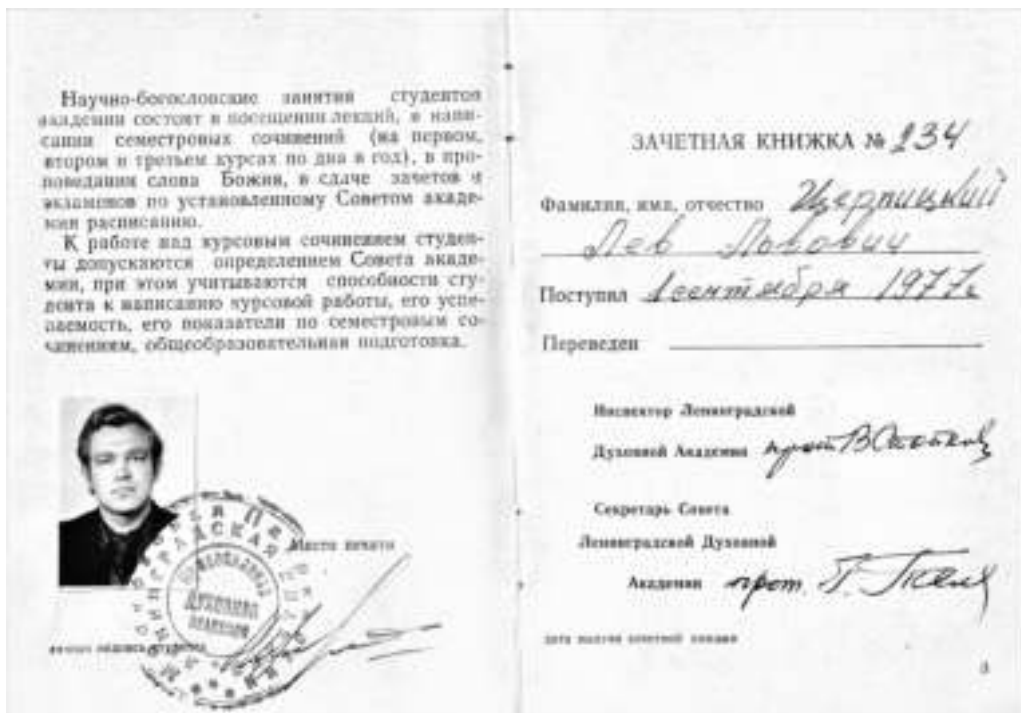 Научно-богословские занятия студентов
академии состоят в посещении лекций, в напи-
сании семестровых сочинений (на первом,
втором и третьем курсах по два в год), в про-
поведании слова Божия, в сдаче зачетов и
экзаменов по установленному Советом акаде-
мии расписанию.
К работе над курсовым сочинением студен-
ты допускаются определением Совета акаде-
мии, при этом учитываются способности сту-
дента к написанию курсовой работы, его успе-
ваемость, его показатели по семестровым со-
чинениям, общеобразовательная подготовка.
Место печати
ДУХОВНАЯ
АКАДЕМИЯ
личная подпись студента
ЗАЧЕТНАЯ КНИЖКА № 234
Фамилия, имя, отчество Церпицкий
Лев Львович
Поступил 1 сентября 1977г
Переведен
Инспектор Ленинградской
Духовной Академии прот В
Секретарь Совета
Ленинградской Духовной
Академии прот.
дата выдачи зачетной книжки
3